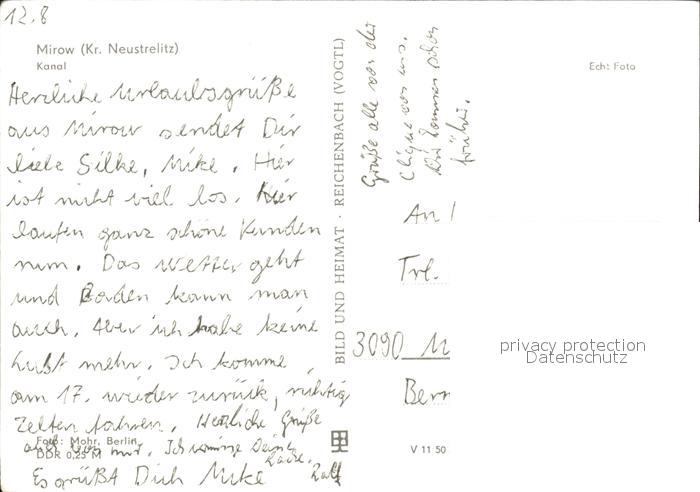 12.8
Mirow (Kr. Neustrelitz)
Kanal
Herzliche Urlaubsgrüße
aus Mirow sendet Dir
liebe Silke, Mike. Hier
ist nicht viel los. Hier
laufen ganz schöne Kunden
rum. Das Wetter geht
und Baden kann man
auch. Aber ich habe keine
Lust mehr. Ich komme
am 17. wieder zurück, richtig
zelten fahren. Herzliche Grüße
auch von mir. Ich
Es grüßt Dich Mike
Ralf
Foto: Mohr, Berlin
DDR 0,25 M
BILD UND HEIMAT · REICHENBACH (VOGTL)
Grüße alle von der
Clique von uns.
Wir kommen schon
früher.
Echt Foto
An
Frl.
3090
Bern
V 11 50
privacy protection
Datenschutz